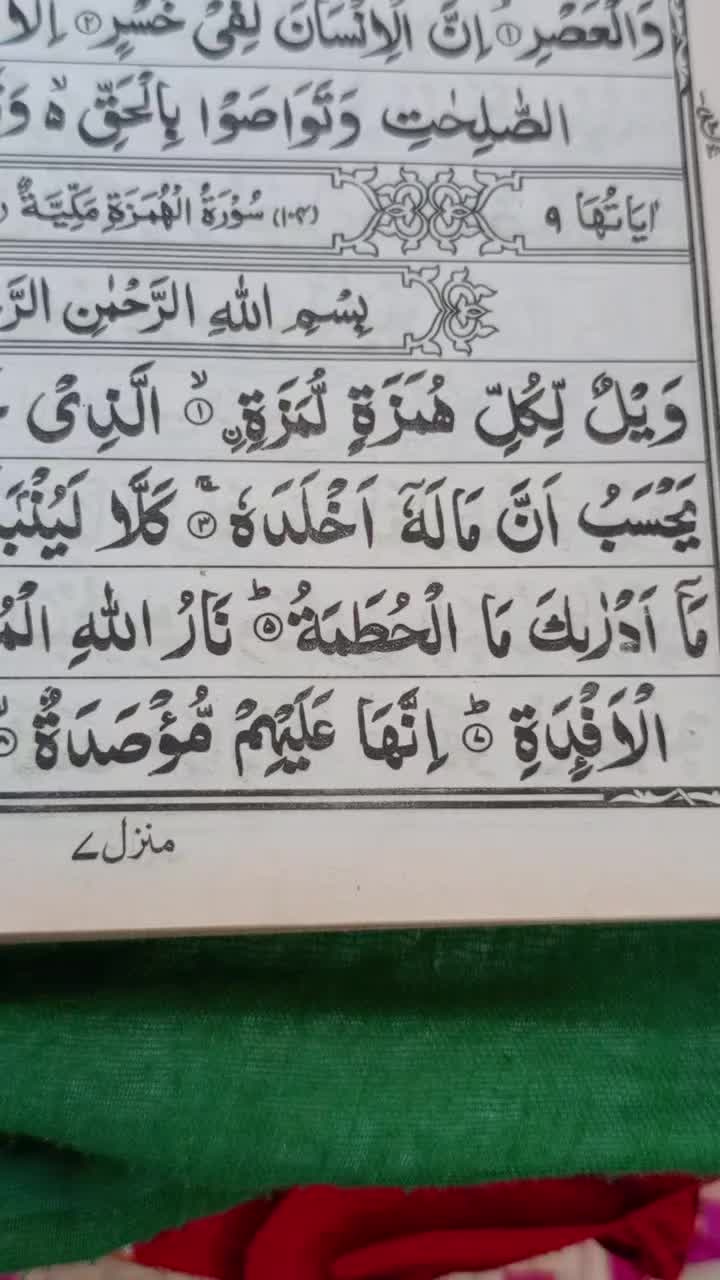 وَالْعَصْرِ ۙ﴿۱﴾ اِنَّ الْاِنْسَانَ لَفِیْ خُسْرٍ ۙ﴿۲﴾ اِلَّا
الصّٰلِحٰتِ وَتَوَاصَوْا بِالْحَقِّ ۙ۬
اٰیَاتُهَا ۹ (۱۰۴) سُوْرَةُ الْهُمَزَةِ مَكِّیَّةٌ
بِسْمِ اللّٰهِ الرَّحْمٰنِ
وَیْلٌ لِّكُلِّ هُمَزَةٍ لُّمَزَةِ ۣۙ﴿۱﴾ الَّذِیْ
یَحْسَبُ اَنَّ مَالَهٗۤ اَخْلَدَهٗ ۚ﴿۳﴾ كَلَّا
مَاۤ اَدْرٰىكَ مَا الْحُطَمَةُ ؕ﴿۵﴾ نَارُ اللّٰهِ
الْاَفْـِٕدَةِ ؕ﴿۷﴾ اِنَّهَا عَلَیْهِمْ مُّؤْصَدَةٌ ۙ﴿۸﴾
منزل ۷